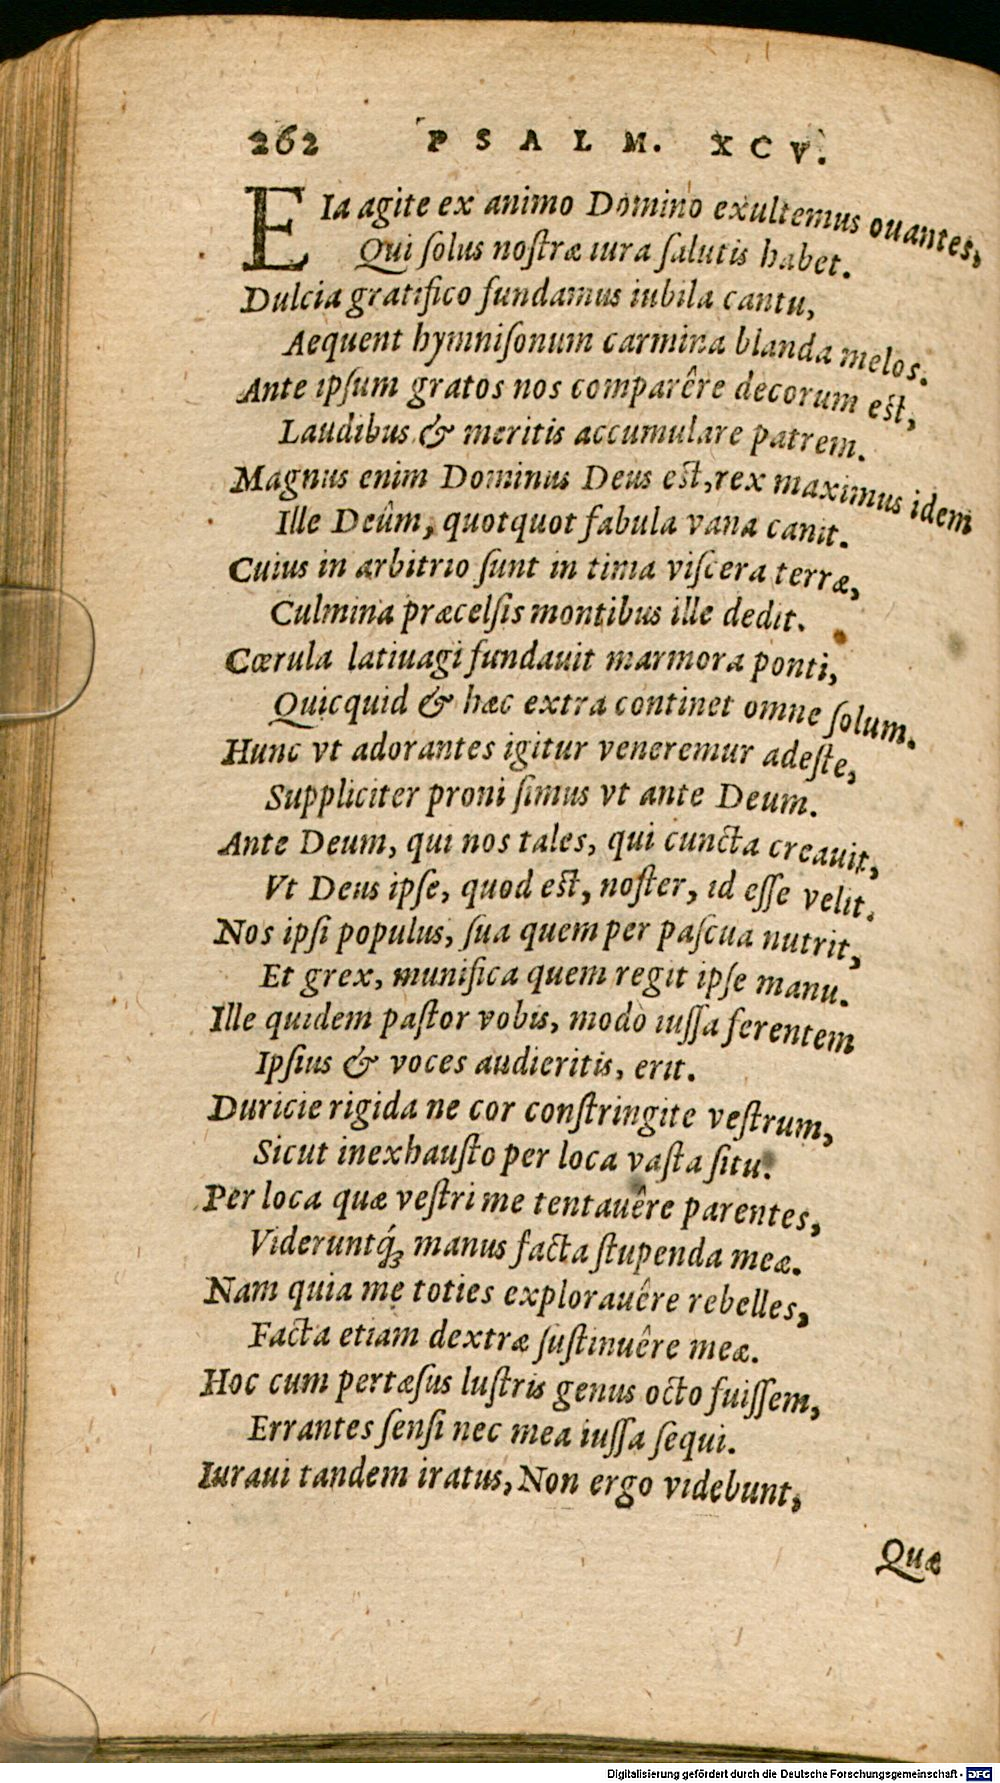 262 PSALM. XCV.
EIa agite ex animo Domino exultemus ouantes,
Qui ſolus noſtræ iura ſalutis habet.
Dulcia gratifico fundamus iubila cantu,
Aequent hymniſonum carmina blanda melos.
Ante ipſum gratos nos comparêre decorum eſt,
Laudibus & meritis accumulare patrem.
Magnus enim Dominus Deus eſt, rex maximus idem
Ille Deûm, quotquot fabula vana canit.
Cuius in arbitrio ſunt in tima viſcera terræ,
Culmina præcelſis montibus ille dedit.
Cœrula latiuagi fundauit marmora ponti,
Quicquid & hæc extra continet omne ſolum.
Hunc vt adorantes igitur veneremur adeſte,
Suppliciter proni ſimus vt ante Deum.
Ante Deum, qui nos tales, qui cuncta creauit,
Vt Deus ipſe, quod eſt, noſter, id eſſe velit.
Nos ipſi populus, ſua quem per paſcua nutrit,
Et grex, munifica quem regit ipſe manu.
Ille quidem paſtor vobis, modò iuſſa ferentem
Ipſius & voces audieritis, erit.
Duricie rigida ne cor conſtringite veſtrum,
Sicut inexhauſto per loca vaſta ſitu.
Per loca quæ veſtri me tentauêre parentes,
Videruntq́ꝫ manus facta ſtupenda meæ.
Nam quia me toties explorauêre rebelles,
Facta etiam dextræ ſuſtinuêre meæ.
Hoc cum pertæſus luſtris genus octo fuiſſem,
Errantes ſenſi nec mea iuſſa ſequi.
Iuraui tandem iratus, Non ergo videbunt,
Quæ
Digitalisierung gefördert durch die Deutsche Forschungsgemeinschaft - DFG